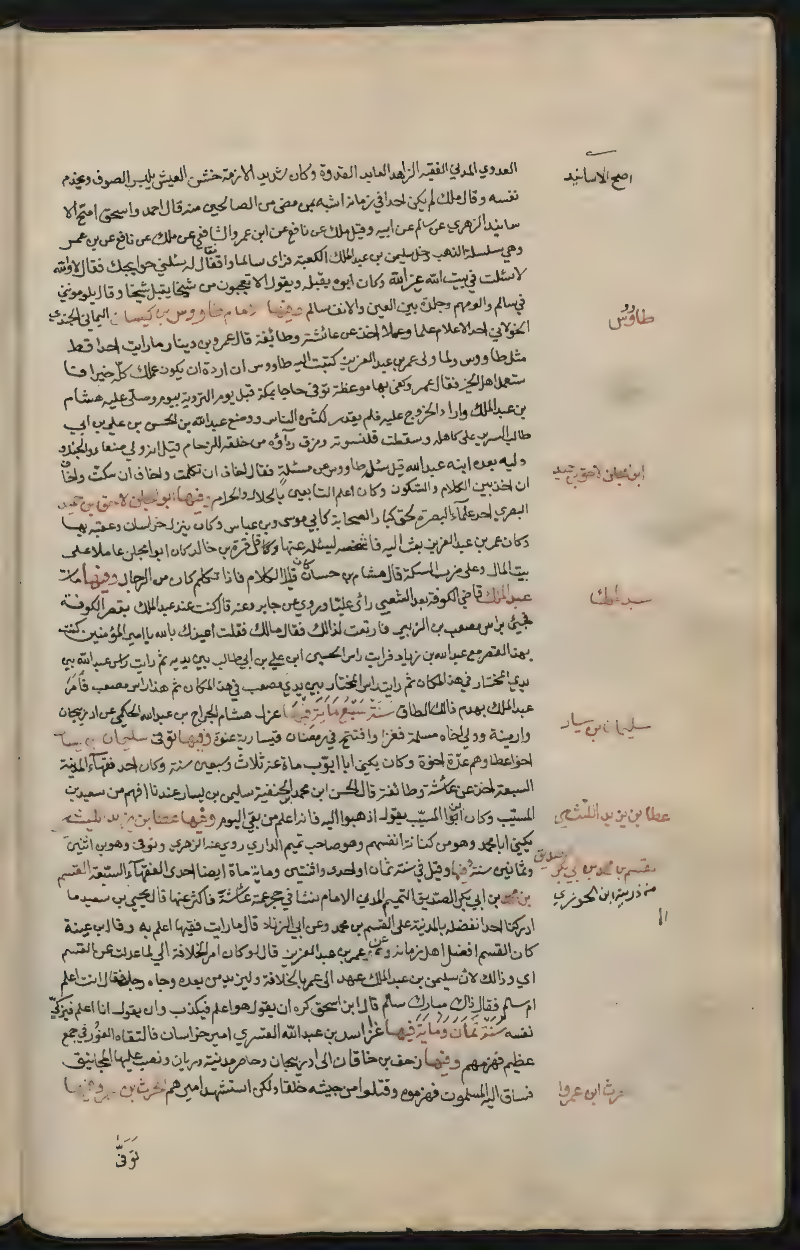 العدوي المدني الفقيه الزاهد العابد القدوة وكان شديد الادمة خشن العيش يلبس الصوف ويخدم
اصح الاسانيد
نفسه وقال ملك لم يكن احدا في زمانه اشبه بمن مضى من الصالحين منه قال احمد واسحق اصح الا
سانيد الزهري عن سالم عن ابيه وقيل ملك عن نافع عن ابن عمر والشافعي عن ملك عن نافع عن بن عمر
وهي سلسلة الذهب دخل سليمن بن عبد الملك الكعبة فراى سالما واقفا فقال له سلني حوايجك فقال لا والله
لا سئلت في بيت الله غير الله وكان ابوه يقبله ويقول الا تعجبون من شيخا يقبل شيخا وقال يلومونني
في سالم والومهم وجلدة بين العين والانف سالم وفيها الامام طاووس بن كيسان اليماني الجندي
طاووس
الخولاني احد الاعلام علما وعملا اخذ عن عائشة وطائفة قال عمرو بن دينار ما رايت احدا قط
مثل طاووس ولما ولى عمر بن عبد العزيز كتبت اليه طاووس ان اردة ان يكون عملك كله خيرا فا
ستعمل اهل الخير فقال عمر وكفى بها موعظة توفى حاجا بمكة قبل يوم التروية بيوم وصلى عليه هشام
بن عبد الملك واراد الخروج عليه فلم يقدر لكثرة الناس ووضع عبد الله بن الحسن بن علي بن ابي
طالب السرير على كاهله وسقطت قلنسوته ومزق رداؤه من خلفه للزحام قيل انه ولي صنعاء والجند و
وليه بعده ابنه عبد الله قيل سئل طاووس عن مسئلة فقال اخاف ان تكلمت واخاف ان سكت واخاف
ابن مجلز لاحق بن حميد
ان اخذ بين الكلام والسكون وكان اعلم التابعين بالحلال والحرام وفيها ابو مجلز لاحق بن حميد
البصري احد علماء البصرة لحق كبار الصحابة كابي موسى وبن عباس وكان ينزل خراسان وعقبه بها
وكان عمر بن عبد العزيز بعث اليه فاشخصه ليسئله عنها وقال قرة بن خالد كان ابوا مجلز عاملا على
بيت المال وعلى ضرب السكة قال هشام بن حسان كان قليل الكلام فاذا تكلم كان من الرجال وفيها مات
عبد الملك قاضي الكوفة بعد الشعبي راى عليا وروى عن جابر وعنه قال كنت عند عبد الملك بقصر الكوفة
عبد الملك
فجيئ براس مصعب بن الزبير فارتعت لذالك فقال مالك فقلت اعيذك بالله يا امير المؤمنين كنت
بهذ القصر مع عبد الله بن زياد فرايت راس الحسين ابن علي بن ابي طالب بين يديه ثم رايت راس عبد الله بين
يدي المختار في هذ المكان ثم رايت راس المختار بين يدي مصعب في هذ المكان ثم هذا راس مصعب فأمر
عبد الملك بهدم ذالك الطاق سنة سبع ماية فيها عزل هشام الجراح بن عبد الله الحكمي عن اذربيجان
وارمينة وولي اخاه مسلمة فغزا وافتتح في رمضان قيسارية عنوة وفيها توفى سليمان بن يسار
سليمان ابن يسار
اخو اعطا وهم عدة اخوة وكان يكنى ابا ايوب ماة عن ثلاث وسبعين سنة وكان احد فقهاء المدينة
السبعة اخذ عن عائشة وطائفة قال الحسن ابن محمد بن الحنفية سليمن بن يسار عندنا افهم من سعيد بن
المسيب وكان ابن المسيب يقول اذهبوا اليه فانه اعلم من بقي اليوم وفيها عطا بن يزيد الليثي
عطا بن يزيد الليثي
يكنى ابا محمد وهو من كنانة انفسهم وهو صاحب تميم الداري روى عنه الزهري وتوفى وهو بن اثنين
وثمانين سنة وفيها وقيل في سنة ثمان او احدى واثنتين وماية ماة ايضا احدى الفقهآء السبعة القسم
قسم بن محمد بن ابي بكر صديق
بن محمد بن ابي بكر الصديق التميمي المدني الامام نشا في حجر عمته عائشة فاكثر عنها قال يحيى بن سعيد ما
من ذريته ابن الجوزي
ادركنا احدا نفضله بالمدينة على القسم بن محمد وعن ابي الزناد قال ما رايت فقيها اعلم به وقال بن عيينة
كان القسم افضل اهل زمانه وعن عمر بن عبد العزيز قال لو كان امر الخلافة الي لما عدلت عن القسم
اي وذالك لان سليمن بن عبد الملك عهد الى عمر بالخلافة وليزيد من بعده وجاه رجل فقال انت اعلم
ام سالم فقال ذاك مبارك سالم قال ابن اسحق كره ان يقول هو اعلم فيكذب وان يقول انا اعلم فيزكي
نفسه سنة ثمان وماية فيها غزا اسد بن عبد الله القسري امير خراسان فالتقاه الغور في جمع
عظيم فهزمهم وفيها زحف بن خاقان الى اذربيجان وحاصر مدينة وربان ونصب عليها المجانيق
فساق اليه المسلمون فهزموه وقتلوا من جيشه خلقا ولكن استشهد اميرهم الحرث بن عمرو وفيها
حرث ابن عمروا
توفى